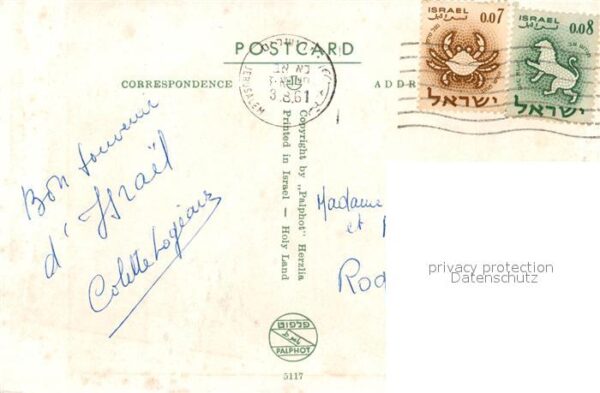 POSTCARD
CORRESPONDENCE
ADDR
ISRAEL 0.07
ישראל
ISRAEL 0.08
ישראל
JERUSALEM
3.8.61
Bon Souvenir
d'Israël
Colette
Copyright by „Palphot" Herzlia
Printed in Israel — Holy Land
Madame
et
Rod
privacy protection
Datenschutz
פלפוט
PALPHOT
5117